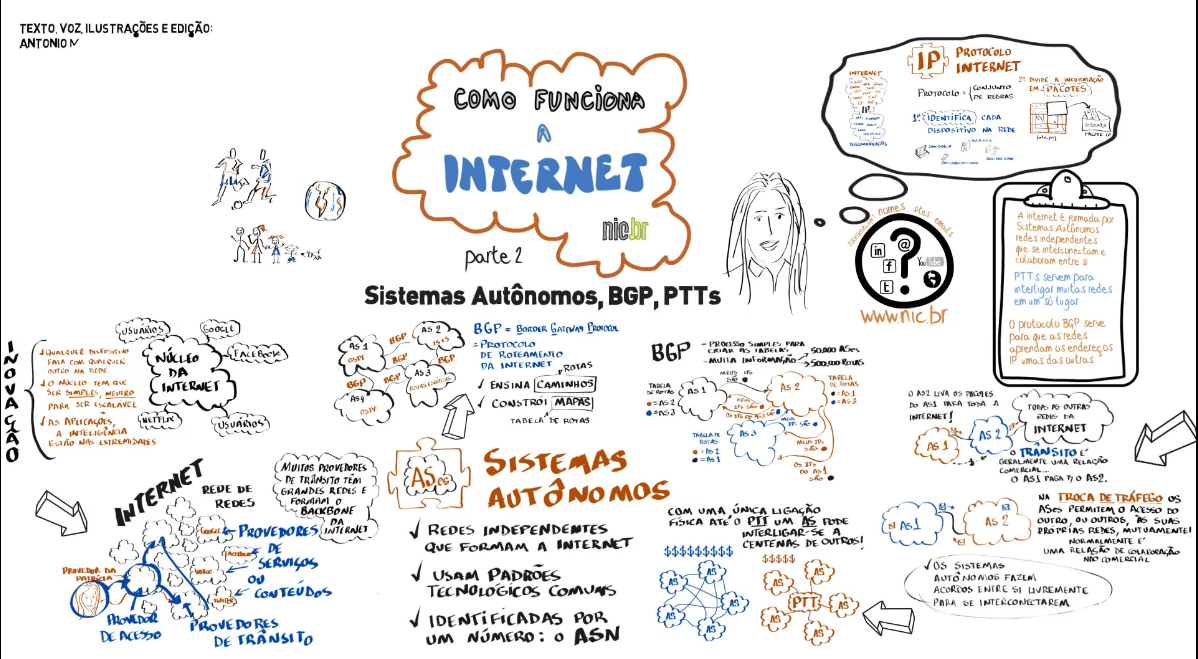 TEXTO, VOZ, ILUSTRAÇÕES E EDIÇÃO:
ANTONIO M
COMO FUNCIONA
A
INTERNET
nic.br
parte 2
Sistemas Autônomos, BGP, PTTs
IP PROTOCOLO
INTERNET
INTERNET
IP
TELECOMUNICAÇÕES
PROTOCOLO = CONJUNTO
DE REGRAS
1º IDENTIFICA CADA
DISPOSITIVO NA REDE
2º DIVIDE A INFORMAÇÃO
EM PACOTES
PACOTE IP
nomes sites emails
in
@
f
You Tube
t
?
www.nic.br
A internet é formada por
Sistemas Autônomos
redes independentes
que se interconectam e
colaboram entre si
PTTs servem para
interligar muitas redes
em um só lugar
O protocolo BGP serve
para que as redes
aprendam os endereços
IP umas das outras
INOVAÇÃO
√ QUALQUER DISPOSITIVO
FALA COM QUALQUER
OUTRO NA REDE
√ O NÚCLEO TEM QUE
SER SIMPLES, NEUTRO
PARA SER ESCALÁVEL
√ AS APLICAÇÕES,
A INTELIGÊNCIA
ESTÃO NAS EXTREMIDADES
USUÁRIOS
GOOGLE
FACEBOOK
NÚCLEO
DA
INTERNET
NETFLIX
USUÁRIOS
AS 1
OSPF
BGP
AS 2
IS-IS
BGP
BGP
BGP
AS 3
ROTAS ESTÁTICAS
BGP
AS4
OSPF
BGP = BORDER GATEWAY PROTOCOL
= PROTOCOLO
DE ROTEAMENTO
DA INTERNET
ROTAS
√ ENSINA CAMINHOS
√ CONSTRÓI MAPAS
TABELA DE ROTAS
BGP
- PROCESSO SIMPLES PARA
CRIAR AS TABELAS
- MUITA INFORMAÇÃO
50.000 ASes
500.000 ROTAS
TABELA
DE ROTAS
= AS 2
= AS 3
AS 1
MEUS IPS
SÃO
AS 2
TABELA
DE ROTAS
= AS 1
= AS 3
MEUS
IPS SÃO
OS IPS DO AS3 SÃO
AS 3
MEUS
IPS SÃO
TABELA DE
ROTAS
= AS 2
= AS 1
MEUS IPS
SÃO
OS IPS
DO AS1
SÃO
O AS2 LEVA OS PACOTES
DO AS1 PARA TODA A
INTERNET!
AS 1
AS 2
TODAS AS OUTRAS
REDES DA
INTERNET
O TRÂNSITO É
GERALMENTE UMA RELAÇÃO
COMERCIAL...
O AS1 PAGA P/ O AS2.
INTERNET
REDE DE
REDES
MUITOS PROVEDORES
DE TRÂNSITO TÊM
GRANDES REDES E
FORMAM O
BACKBONE
DA
INTERNET
GOOGLE
PROVEDORES
DE
SERVIÇOS
OU
CONTEÚDOS
FACEBOOK
TWITTER
PROVEDOR DA
PATRÍCIA
PROVEDOR
DE ACESSO
PROVEDORES
DE TRÂNSITO
ASes
SISTEMAS
AUTÔNOMOS
√ REDES INDEPENDENTES
QUE FORMAM A INTERNET
√ USAM PADRÕES
TECNOLÓGICOS COMUNS
√ IDENTIFICADAS POR
UM NÚMERO: O ASN
COM UMA ÚNICA LIGAÇÃO
FÍSICA ATÉ O PTT UM AS PODE
INTERLIGAR-SE A
CENTENAS DE OUTROS!
$$$$$$$$$$
AS
AS
AS
AS
AS
AS
$$$$$
AS
AS
AS
PTT
AS
AS
AS
AS 1
AS 2
NA TROCA DE TRÁFEGO OS
ASES PERMITEM O ACESSO DO
OUTRO, OU OUTROS, ÀS SUAS
PRÓPRIAS REDES, MUTUAMENTE!
NORMALMENTE É
UMA RELAÇÃO DE COLABORAÇÃO
NÃO COMERCIAL
√ OS SISTEMAS
AUTÔNOMOS FAZEM
ACORDOS ENTRE SI LIVREMENTE
PARA SE INTERCONECTAREM